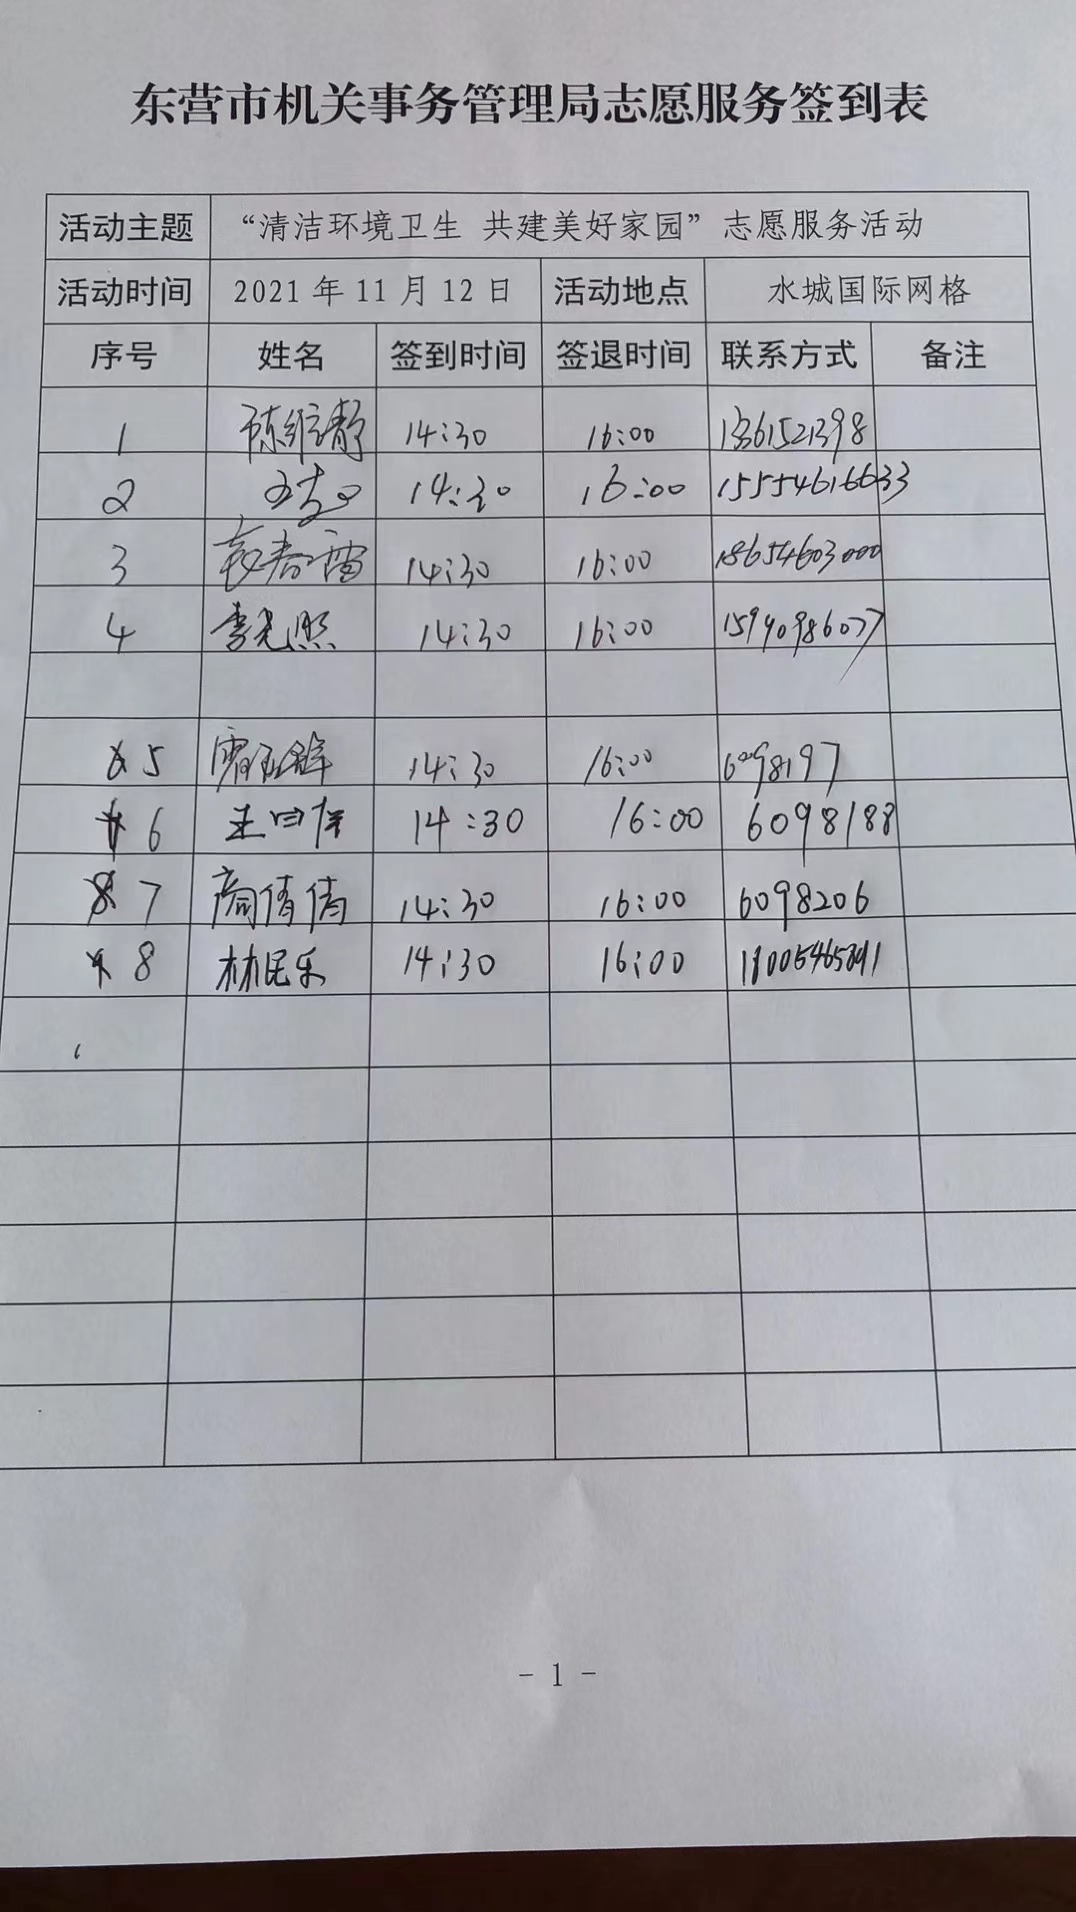 东营市机关事务管理局志愿服务签到表
活动主题 “清洁环境卫生 共建美好家园”志愿服务活动
活动时间 2021年11月12日 活动地点 水城国际网格
序号 姓名 签到时间 签退时间 联系方式 备注
1 陈维静 14:30 16:00
2 14:30 16:00 15554616633
3 14:30 16:00 18654603000
4 李光照 14:30 16:00
5 14:30 16:00 6098197
6 14:30 16:00 6098188
7 倩倩 14:30 16:00 6098206
8 林民乐 14:30 16:00
- 1 -